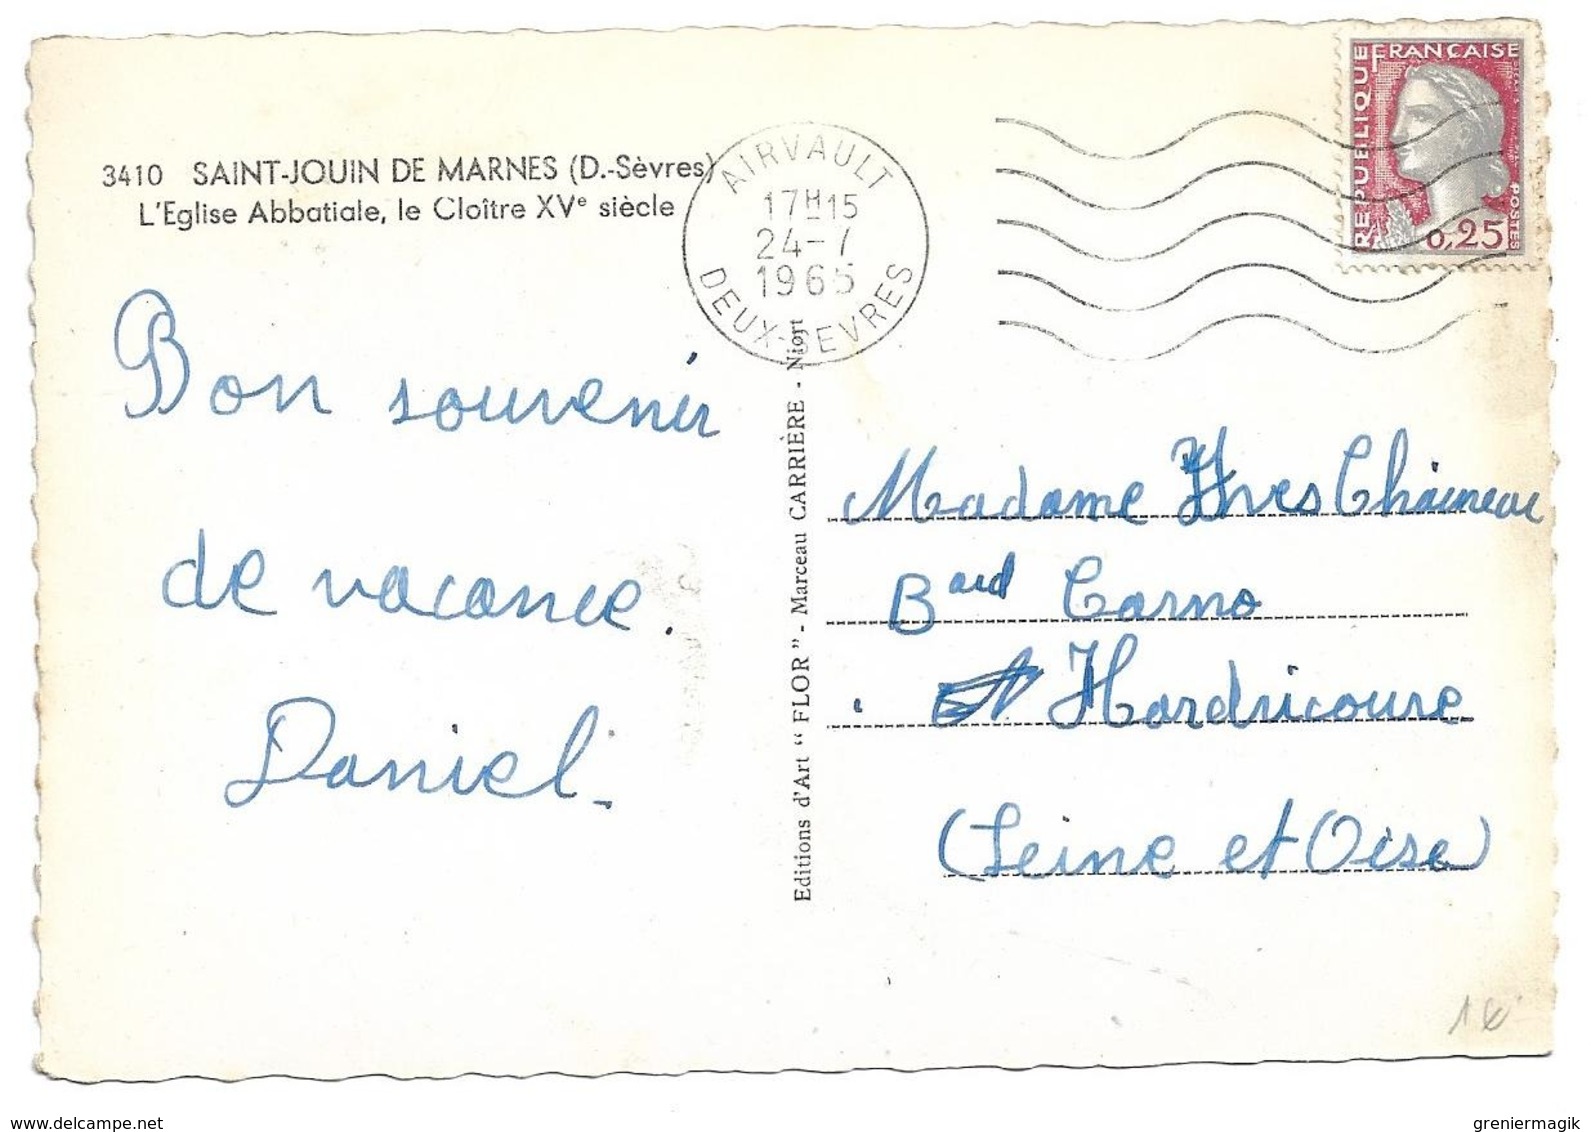 3410 SAINT-JOUIN DE MARNES (D.-Sèvres)
L'Eglise Abbatiale, le Cloître XVe siècle
AIRVAULT
17H15
24-7
1965
DEUX-SEVRES
REPUBLIQUE FRANÇAISE
POSTES
0,25
Bon souvenir
de vacance.
Daniel
Editions d'Art “ FLOR ” - Marceau CARRIÈRE - Niort
Madame Yves
Bard Carno
Hardricourt
(Seine et Oise)
1€
delcampe.net
greniermagik